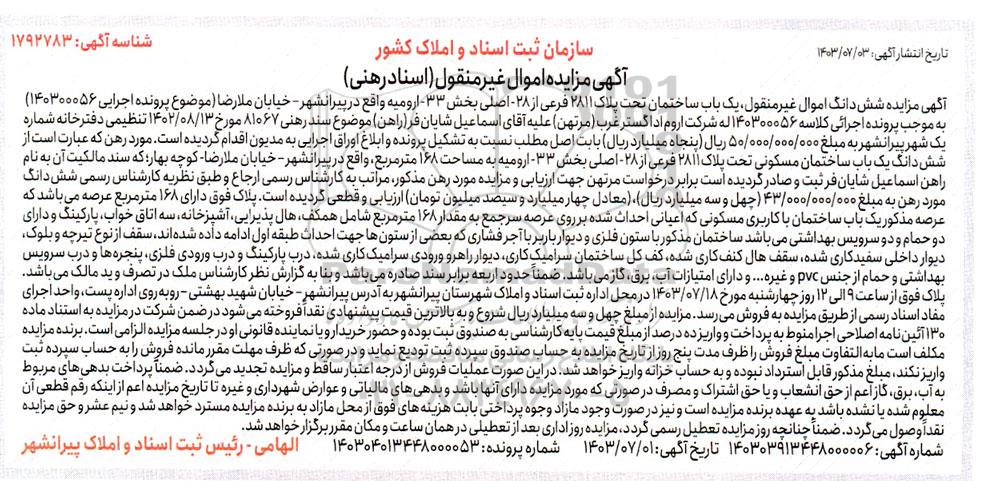 شناسه آگهی: ۱۷۹۲۷۸۳
تاریخ انتشار آگهی: ۱۴۰۳/۰۷/۰۳
سازمان ثبت اسناد و املاک کشور
آگهی مزایده اموال غیر منقول (اسناد رهنی)
آگهی مزایده شش دانگ اموال غیر منقول، یک باب ساختمان تحت پلاک ۲۸۱۱ فرعی از ۲۸- اصلی بخش ۳۳- ارومیه واقع در پیرانشهر- خیابان ملارضا (موضوع پرونده اجرایی ۱۴۰۳۰۰۰۵۶)
به موجب پرونده اجرائی کلاسه ۱۴۰۳۰۰۰۵۶ له شرکت اروم آدا گستر غرب (مرتهن) علیه آقای اسماعیل شایان فر (راهن) موضوع سند رهنی ۸۱۰۶۷ مورخ ۱۴۰۲/۰۸/۱۳ تنظیمی دفترخانه شماره
یک شهر پیرانشهر به مبلغ ۵۰/۰۰۰/۰۰۰/۰۰۰ ریال (پنجاه میلیارد ریال) بابت اصل مطلب نسبت به تشکیل پرونده و ابلاغ اوراق اجرایی به مدیون اقدام گردیده است. مورد رهن که عبارت است از
شش دانگ یک باب ساختمان مسکونی تحت پلاک ۲۸۱۱ فرعی از ۲۸- اصلی بخش ۳۳- ارومیه به مساحت ۱۶۸ مترمربع، واقع در پیرانشهر- خیابان ملارضا- کوچه بهار؛ که سند مالکیت آن به نام
راهن اسماعیل شایان فر ثبت و صادر گردیده است برابر درخواست مرتهن جهت ارزیابی و مزایده مورد رهن مذکور، مراتب به کارشناس رسمی ارجاع و طبق نظریه کارشناس رسمی شش دانگ
مورد رهن به مبلغ ۴۳/۰۰۰/۰۰۰/۰۰۰ (چهل و سه میلیارد ریال)، (معادل چهار میلیارد و سیصد میلیون تومان) ارزیابی و قطعی گردیده است. پلاک فوق دارای ۱۶۸ مترمربع عرصه می‌باشد که
عرصه مذکور یک باب ساختمان با کاربری مسکونی که اعیانی احداث شده بر روی عرصه سر جمع به مقدار ۱۶۸ مترمربع شامل همکف، هال پذیرایی، آشپزخانه، سه اتاق خواب، پارکینگ و دارای
دو حمام و دو سرویس بهداشتی می‌باشد ساختمان مذکور با ستون فلزی و دیوار باربر با آجر فشاری که بعضی از ستون‌ها جهت احداث طبقه اول ادامه داده شده‌اند، سقف از نوع تیرچه و بلوک،
دیوار داخلی سفیدکاری شده، سقف هال کنف کاری شده، کف کل ساختمان سرامیک کاری، دیوار راهرو ورودی سرامیک کاری شده، درب پارکینگ و درب ورودی فلزی، پنجره‌ها و درب سرویس
بهداشتی و حمام از جنس pvc و غیره... و دارای امتیازات آب، برق، گاز می‌باشد. ضمناً حدود اربعه برابر سند صادره می‌باشد. و بنا به گزارش نظر کارشناس ملک در تصرف و ید مالک می‌باشد.
پلاک فوق از ساعت ۹ الی ۱۲ روز چهارشنبه مورخ ۱۴۰۳/۰۷/۱۸ در محل اداره ثبت اسناد و املاک شهرستان پیرانشهر به آدرس پیرانشهر- خیابان شهید بهشتی- روبه روی اداره پست، واحد اجرای
مفاد اسناد رسمی از طریق مزایده به فروش می‌رسد. مزایده از مبلغ چهل و سه میلیارد ریال شروع و به بالاترین قیمت پیشنهادی نقداً فروخته می‌شود در ضمن شرکت در مزایده به استناد ماده
۱۳۰ آئین نامه اصلاحی اجرا منوط به پرداخت و واریز ده درصد از مبلغ قیمت پایه کارشناسی به صندوق ثبت بوده و حضور خریدار و یا نماینده قانونی او در جلسه مزایده الزامی است. برنده مزایده
مکلف است مابه التفاوت مبلغ فروش را ظرف مدت پنج روز از تاریخ مزایده به حساب صندوق سپرده ثبت تودیع نماید و در صورتی که ظرف مهلت مقرر مانده فروش را به حساب سپرده ثبت
واریز نکند، مبلغ مذکور قابل استرداد نبوده و به حساب خزانه واریز خواهد شد. در این صورت عملیات فروش از درجه اعتبار ساقط و مزایده تجدید می‌گردد. ضمناً پرداخت بدهی‌های مربوط
به آب، برق، گاز اعم از حق انشعاب و یا حق اشتراک و مصرف در صورتی که مورد مزایده دارای آنها باشد و بدهی‌های مالیاتی و عوارض شهرداری و غیره تا تاریخ مزایده اعم از اینکه رقم قطعی آن
معلوم شده یا نشده باشد به عهده برنده مزایده است و نیز در صورت وجود مازاد وجوه پرداختی بابت هزینه های فوق از محل مازاد به برنده مزایده مسترد خواهد شد و نیم عشر و حق مزایده
نقداً وصول می‌گردد. ضمناً چنانچه روز مزایده تعطیل رسمی گردد، مزایده روز اداری بعد از تعطیلی در همان ساعت و مکان مقرر برگزار خواهد شد.
شماره آگهی: ۱۴۰۳۰۳۹۱۳۴۴۸۰۰۰۰۰۶ تاریخ آگهی: ۱۴۰۳/۰۷/۰۱ شماره پرونده: ۱۴۰۳۰۴۰۱۳۴۴۸۰۰۰۰۵۳ الهامی - رئیس ثبت اسناد و املاک پیرانشهر